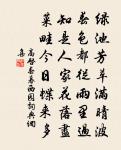 綠池芳草滿晴波
春色都從雨里過
知是人家花落盡
菜畦今日蝶來多
高啓暮春西園詞典網
集